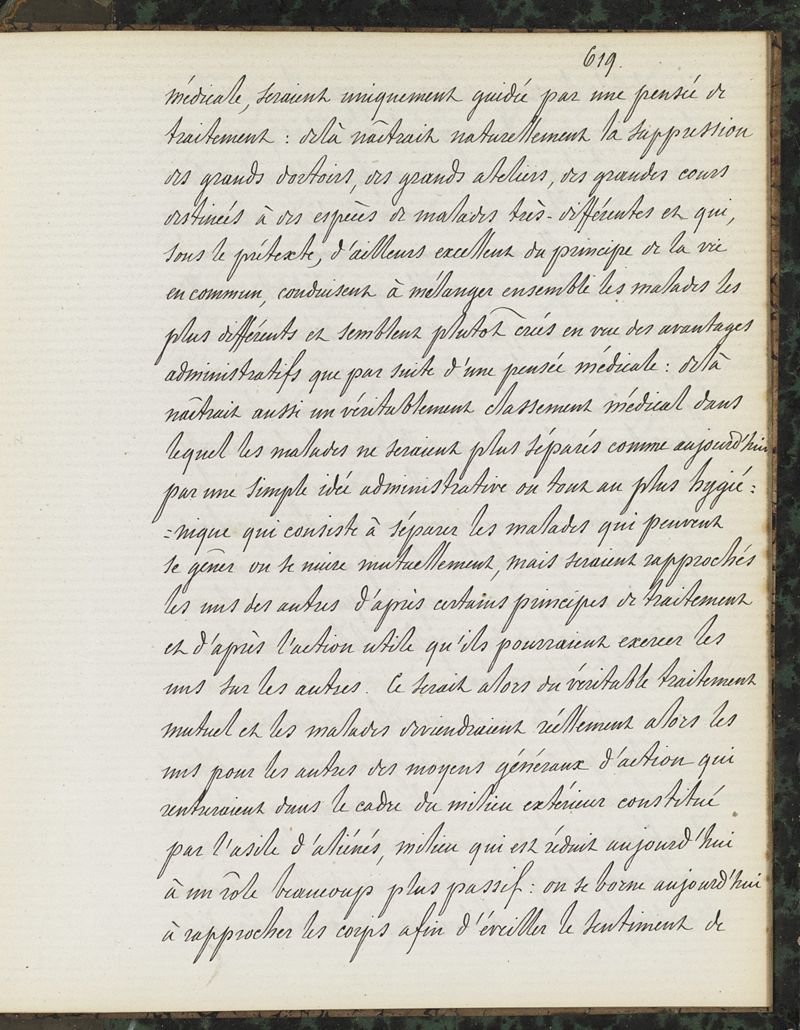 619.
médicale, seraient uniquement guidée par une pensée de
traitement : delà naîtrait naturellement la suppression
des grands dortoirs, des grands ateliers, des grandes cours
destinées à des espèces de malades très-différentes et qui,
sous le prétexte, d'ailleurs excellent du principe de la vie
en commun, conduisent à mélanger ensemble les malades les
plus différents et semblent plutôt créés en vue des avantages
administratifs que par suite d'une pensée médicale : delà
naîtrait aussi un véritablement classement médical dans
lequel les malades ne seraient plus séparés comme aujourd'hui
par une simple idée administrative ou tout au plus hygié=
=nique qui consiste à séparer les malades qui peuvent
se gêner ou se nuire mutuellement, mais seraient rapprochés
les uns des autres d'après certains principes de traitement
et d'après l'action utile qu'ils pourraient exercer les
uns sur les autres. Ce serait alors du véritable traitement
mutuel et les malades deviendraient réellement alors les
uns pour les autres des moyens généraux d'action qui
rentreraient dans le cadre du milieu extérieur constitué
par l'asile d'aliénés, milieu qui est réduit aujourd'hui
à un rôle beaucoup plus passif : on se borne aujourd'hui
à rapprocher les corps afin d'éveiller le sentiment de